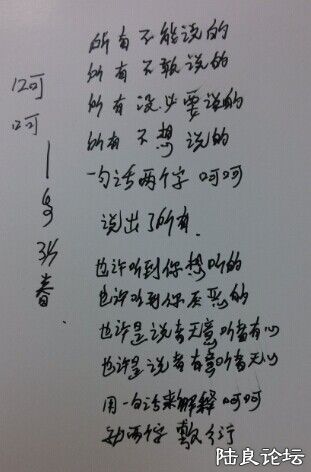 呵呵
所有不能说的
所有不敢说的
所有没必要说的
所有不想说的
一句话两个字 呵呵
说出了所有.
也许听到你想听的
也许听到你厌恶的
也许是说者无意听者有心
也许是说者有意听者无心
用一句话来解释 呵呵
两字 敷衍
陆良论坛